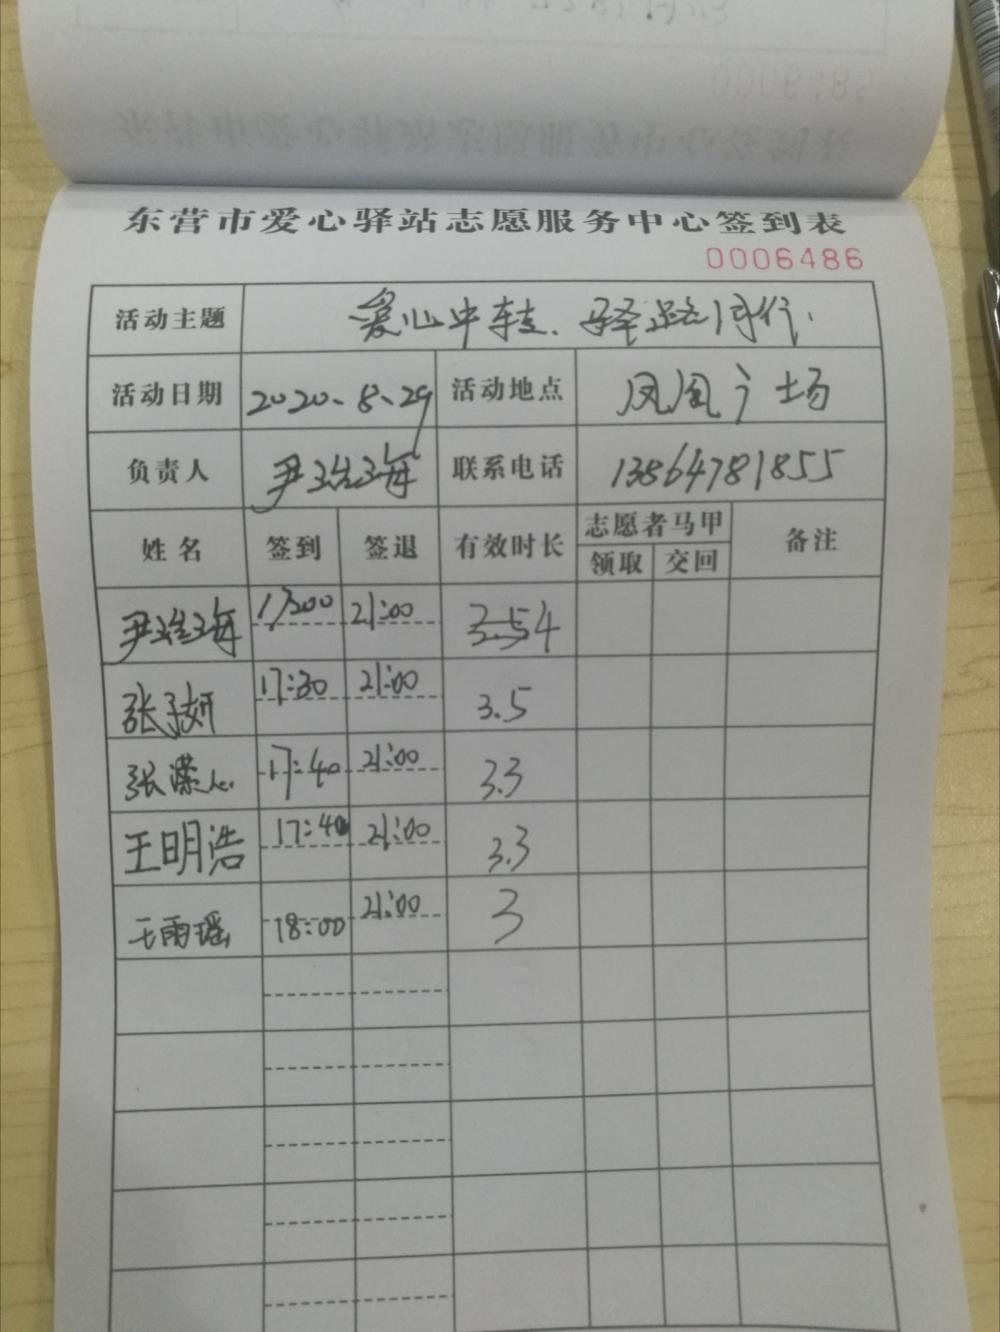 东营市爱心驿站志愿服务中心签到表
0006486
活动主题 爱心中转、驿路同行.
活动日期 2020.8.29 活动地点 凤凰广场
负责人 尹 海 联系电话 13864781855
姓名 签到 签退 有效时长 志愿者马甲 备注
领取 交回
尹 海 17:00 21:00 4
张子妍 17:30 21:00 3.5
张 心 17:40 21:00 3.3
王明浩 17:40 21:00 3.3
王雨瑶 18:00 21:00 3